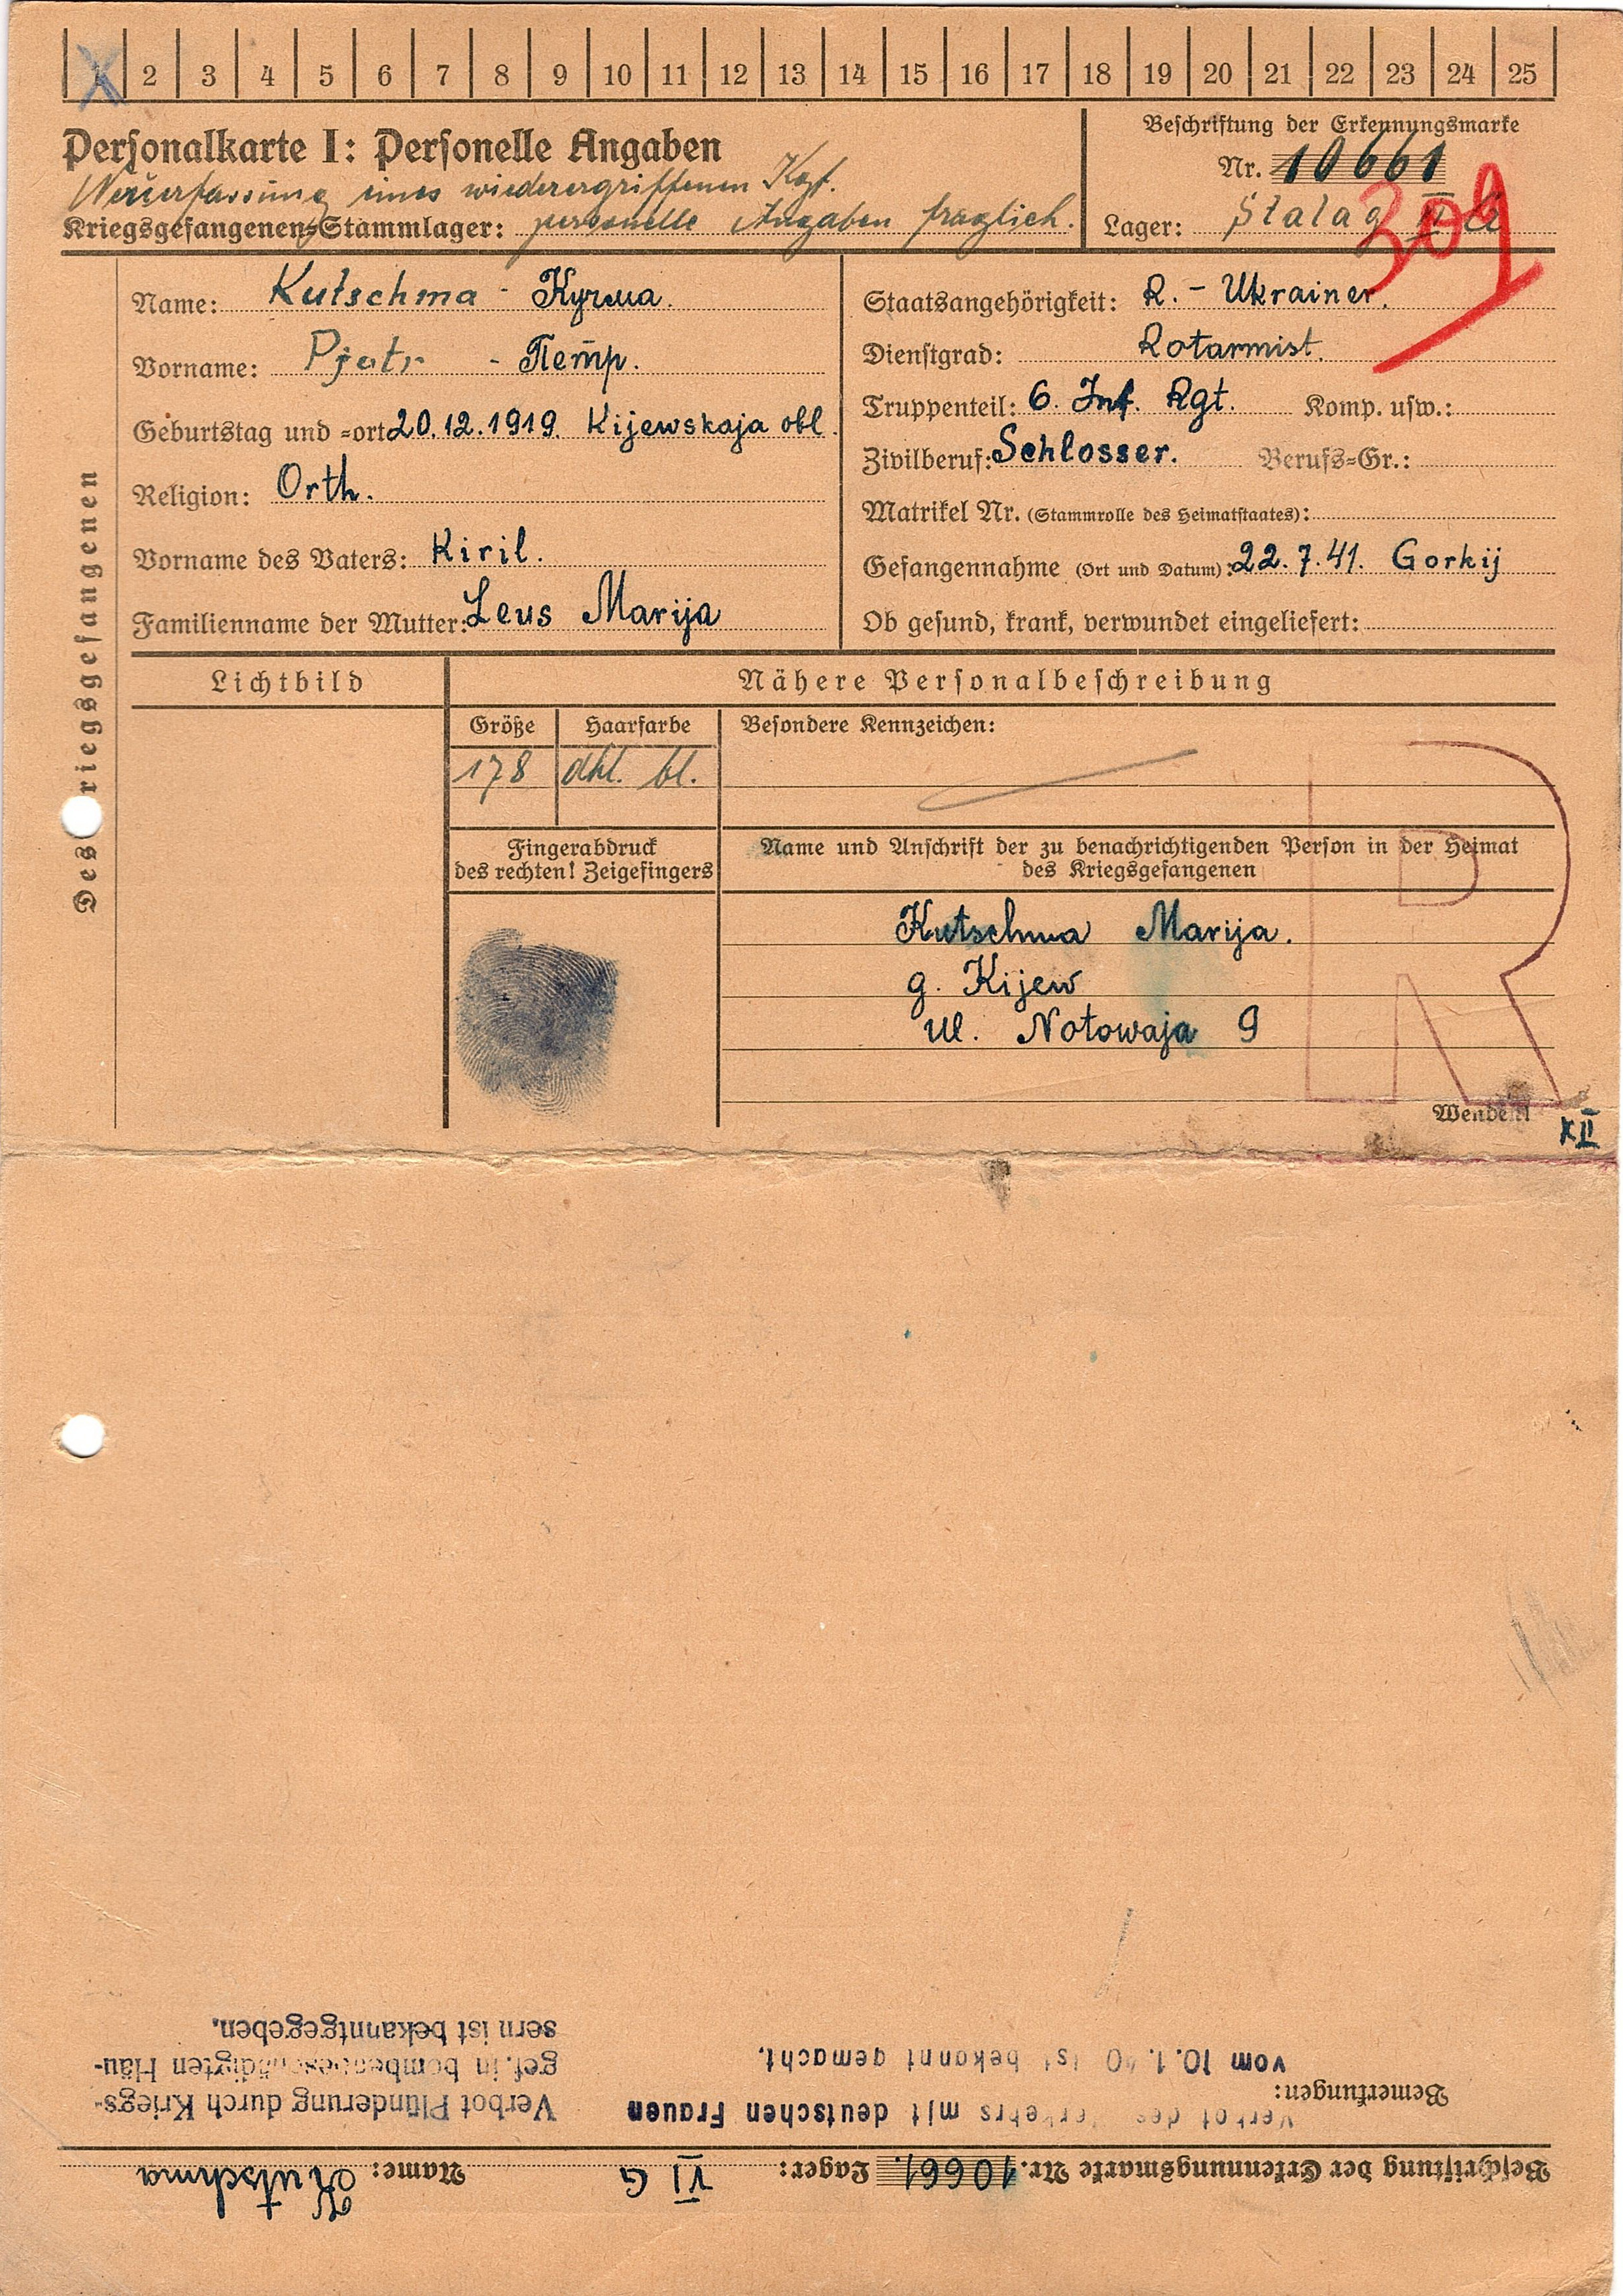 X 2 3 4 5 6 7 8 9 10 11 12 13 14 15 16 17 18 19 20 21 22 23 24 25
Personalkarte I: Personelle Angaben
Neuerfassung eines wiederergriffenen Kgf.
Kriegsgefangenen-Stammlager: personelle Angaben fraglich.
Beschriftung der Erkennungsmarke
Nr. 10661
Lager: Stalag VI G
309
Des Kriegsgefangenen
Name: Kutschma - Кучма.
Vorname: Pjotr - Петр.
Geburtstag und -ort 20.12.1919. Kijewskaja obl.
Religion: Orth.
Vorname des Vaters: Kiril.
Familienname der Mutter: Leus Marija
Staatsangehörigkeit: R. - Ukrainer.
Dienstgrad: Rotarmist.
Truppenteil: 6. Inf. Rgt. Komp. usw.:
Zivilberuf: Schlosser. Berufs-Gr.:
Matrikel Nr. (Stammrolle des Heimatstaates):
Gefangennahme (Ort und Datum): 22.7.41. Gorkij
Ob gesund, krank, verwundet eingeliefert:
Lichtbild
Nähere Personalbeschreibung
Größe Haarfarbe Besondere Kennzeichen:
178 dkl. bl.
Fingerabdruck
des rechten! Zeigefingers
Name und Anschrift der zu benachrichtigenden Person in der Heimat
des Kriegsgefangenen
Kutschma Marija.
g. Kijew
ul. Notowaja 9
R
Wenden!
K II
Beschriftung der Erkennungsmarke Nr. 10661. Lager: VI G Name: Kutschma
Bemerkungen:
Verbot des Verkehrs mit deutschen Frauen
vom 10.1.40 ist bekannt gemacht.
Verbot Plünderung durch Kriegs-
gef. in bombenbeschädigten Häu-
sern ist bekanntgegeben.